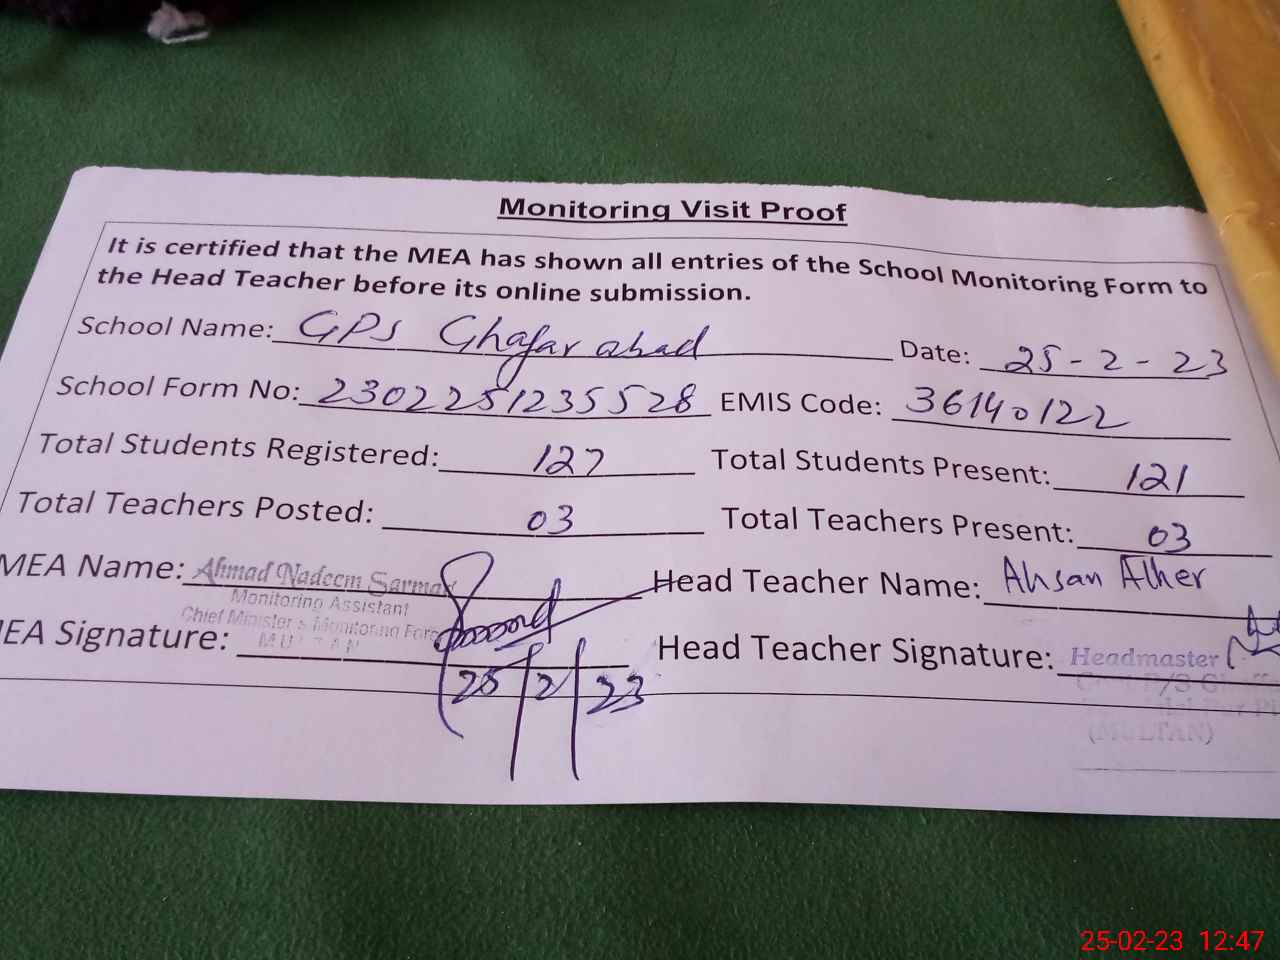 Monitoring Visit Proof
It is certified that the MEA has shown all entries of the School Monitoring Form to
the Head Teacher before its online submission.
School Name: GPS Ghafar abad Date: 25-2-23
School Form No: 2302251235528 EMIS Code: 36140122
Total Students Registered: 127 Total Students Present: 121
Total Teachers Posted: 03 Total Teachers Present: 03
MEA Name: Ahmad Nadeem Sarmad Head Teacher Name: Ahsan Ather
Monitoring Assistant
Chief Minister's Monitoring Force
MULTAN
MEA Signature: Head Teacher Signature: Headmaster
25/2/23
(MULTAN)
25-02-23 12:47